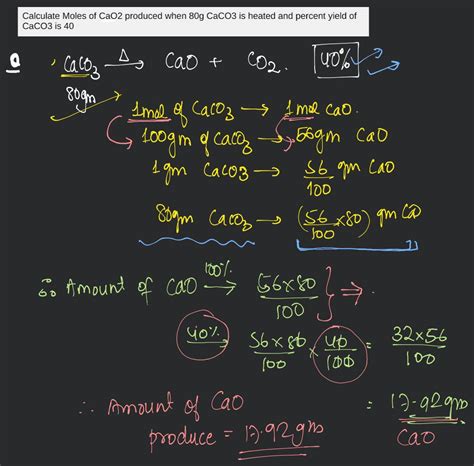 Calculate Moles of CaO2 produced when 80g CaCO3 is heated and percent yield of
CaCO3 is 40
Q CaCO3 —Δ→ CaO + CO2. 40%
80gm
1mol of CaCO3 → 1 mol CaO.
100gm of CaCO3 → 56gm CaO
1 gm CaCO3 → 56/100 gm CaO
80gm CaCO3 → (56/100 ×80) gm CaO
∴ Amount of CaO 100% → 56×80/100 } ⇒.
40% → 56×80/100 × 40/100 = 32×56/100
∴ Amount of CaO = 17.92gm
produce = 17.92gms CaO